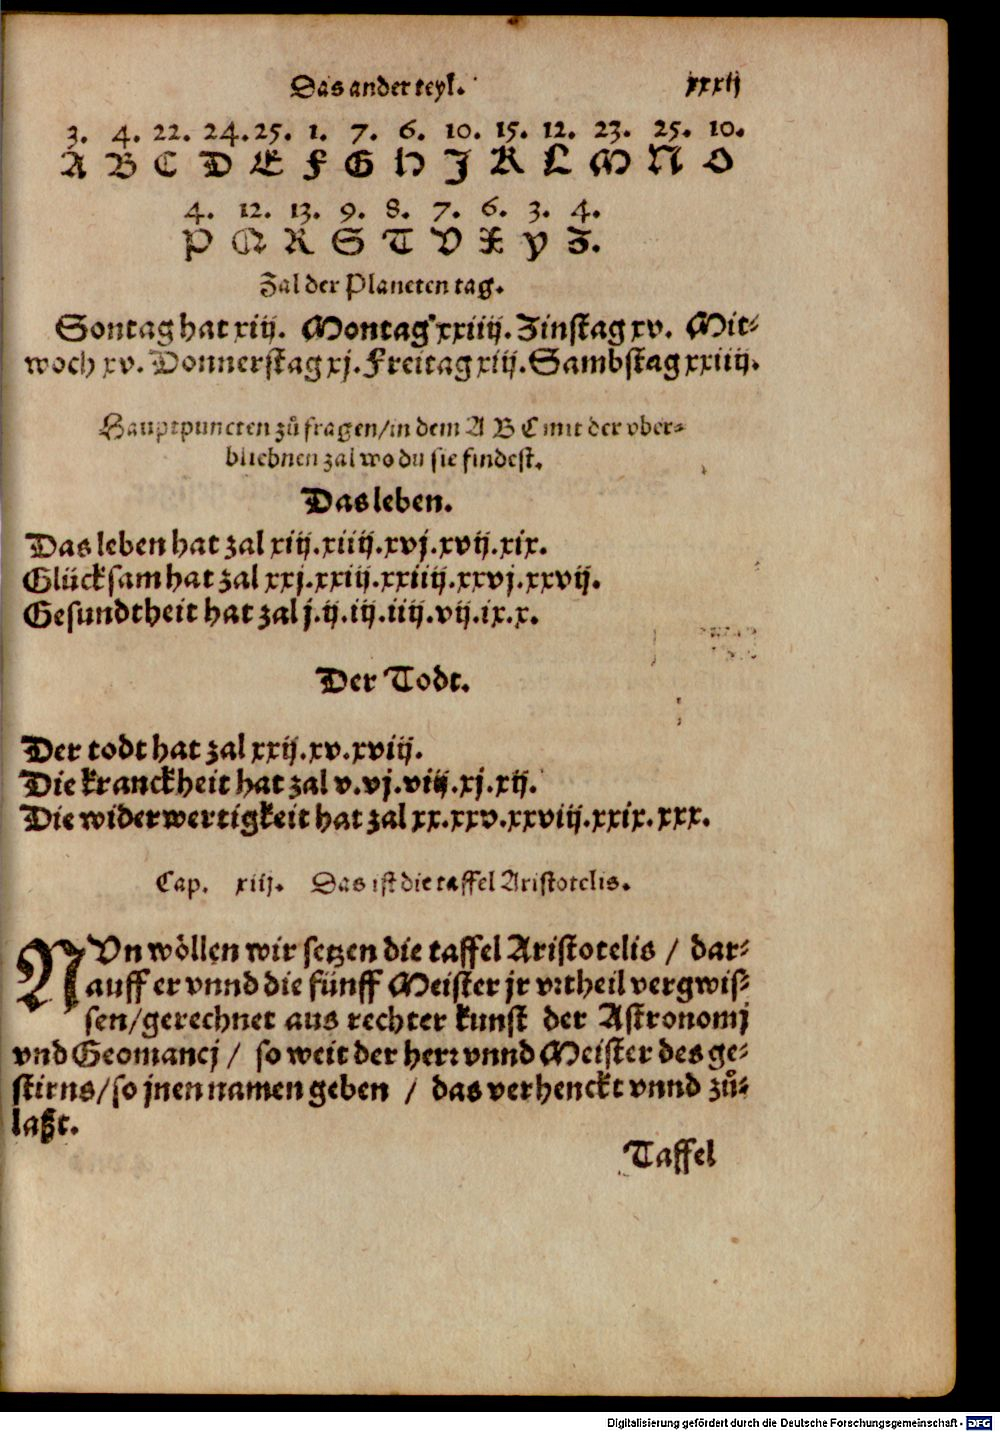 Das ander teyl. xxxij
3. 4. 22. 24. 25. 1. 7. 6. 10. 15. 12. 23. 25. 10.
A B C D E F G H J K L M N O
4. 12. 13. 9. 8. 7. 6. 3. 4.
P Q R S T V X y Z.
Zal der Planeten tag.
Sontag hat xiij. Montag xxiiij. Zinstag xv. Mit-
woch xv. Donnerstag xj. Freitag xiij. Sambstag xxiiij.
Hauptpuncten zů fragen/in dem A B C mit der vber-
bliebnen zal wo du sie findest.
Das leben.
Das leben hat zal xiij.xiiij.xvj.xvij.xix.
Glücksam hat zal xxj.xxiij.xxiiij.xxvj.xxvij.
Gesundtheit hat zal j.ij.iij.iiij.vij.ix.x.
Der Todt.
Der todt hat zal xxij.xv.xviij.
Die kranckheit hat zal v.vj.viij.xj.xij.
Die widerwertigkeit hat zal xx.xxv.xxviij.xxix.xxx.
Cap. xiij. Das ist die taffel Aristotelis.
NVn wöllen wir setzen die taffel Aristotelis / dar-
auff er vnnd die fünff Meister jr vrtheil vergwis-
sen/gerechnet aus rechter kunst der Astronomj
vnd Geomancj / so weit der herr vnnd Meister des ge-
stirns/so jnen namen geben / das verhenckt vnnd zů-
laßt.
Taffel
Digitalisierung gefördert durch die Deutsche Forschungsgemeinschaft - DFG